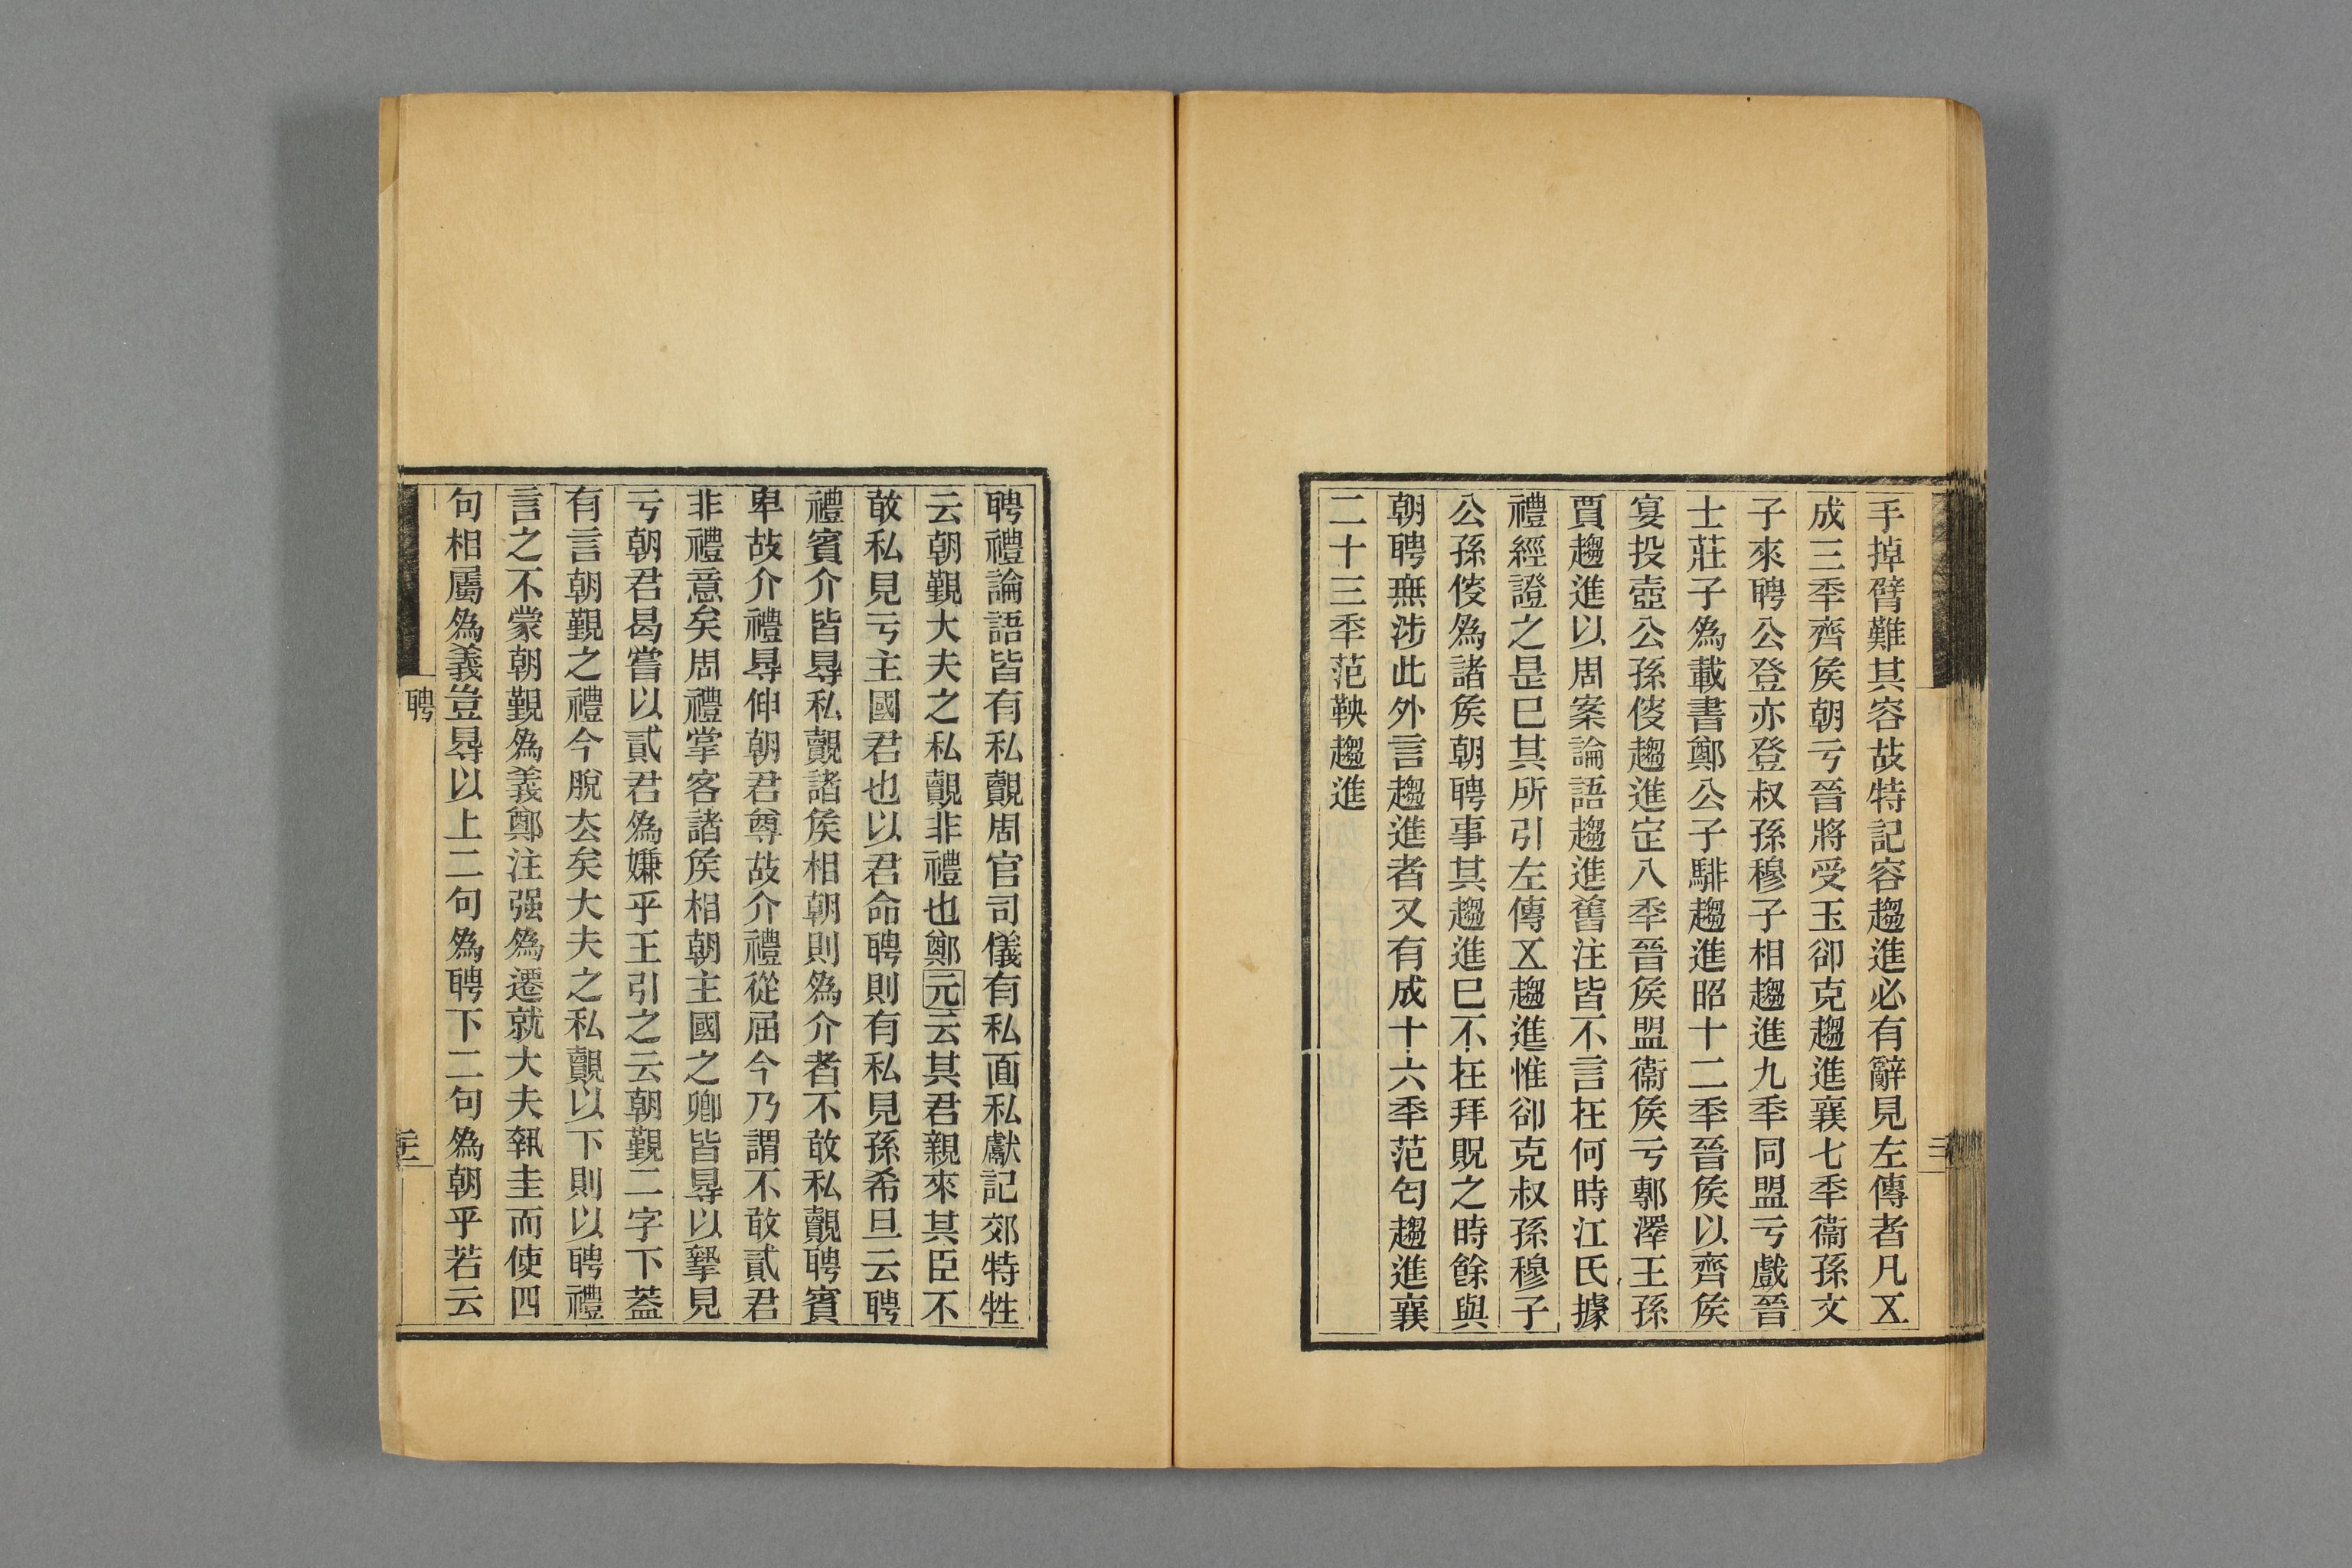 手掉臂難其容故特記容趨進必有辭見左傳者凡㐅
成三秊齊矦朝亏晉將受玉卻克趨進襄七秊衞孫文
子來聘公登亦登叔孫穆子相趨進九秊同盟亏戲晉
士莊子爲載書鄭公子騑趨進昭十二秊晉矦以齊矦
宴投壺公孫傁趨進定八秊晉矦盟衞矦亏鄟澤王孫
賈趨進以周案論語趨進舊注皆不言在何時江氏據
禮經證之是巳其所引左傳㐅趨進惟卻克叔孫穆子
公孫傁爲諸矦朝聘事其趨進巳不在拜貺之時餘與
朝聘無涉此外言趨進者又有成十六秊范匄趨進襄
二十三秊范鞅趨進
聘禮論語皆有私覿周官司儀有私面私獻記郊特牲
云朝覲大夫之私覿非禮也鄭元云其君親來其臣不
敢私見亏主國君也以君命聘則有私見孫希旦云聘
禮賓介皆㝵私覿諸矦相朝則爲介者不敢私覿聘賓
卑故介禮㝵伸朝君尊故介禮從屈今乃謂不敢貳君
非禮意矣周禮掌客諸矦相朝主國之卿皆㝵以摯見
亏朝君曷嘗以貳君爲嫌乎王引之云朝覲二字下蓋
有言朝覲之禮今脫厺矣大夫之私覿以下則以聘禮
言之不蒙朝覲爲義鄭注强爲遷就大夫執圭而使四
句相屬爲義豈㝵以上二句爲聘下二句爲朝乎若云
聘